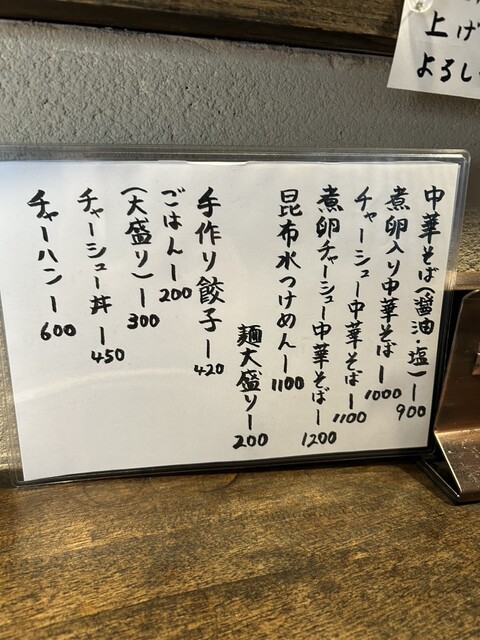 中華そば(醤油・塩)ー900
煮卵入り中華そばー1000
チャーシュー中華そばー1100
煮卵チャーシュー中華そばー1200
昆布水つけめんー1100
麺大盛りー200
手作り餃子ー420
ごはんー200
(大盛り)ー300
チャーシュー丼ー450
チャーハンー600
上げ
よろし